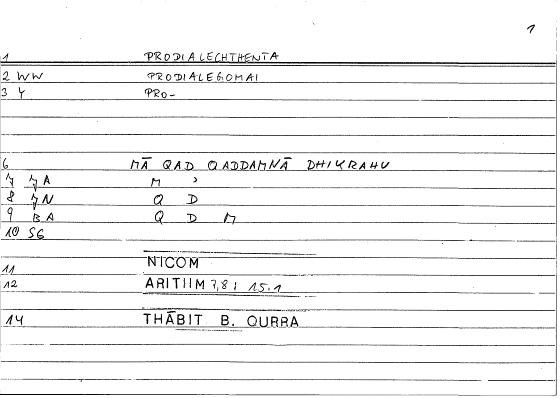 1
1 PRODIALECHTHENTA
2 WW PRODIALEGOMAI
3 Y PRO-
6 MĀ QAD QADDAMNĀ DHIKRAHU
7 JA M ʾ
8 JN Q D
9 BA Q D M
10 SG
11 NICOM
12 ARITIIM 7,8; 15.1
14 THĀBIT B. QURRA